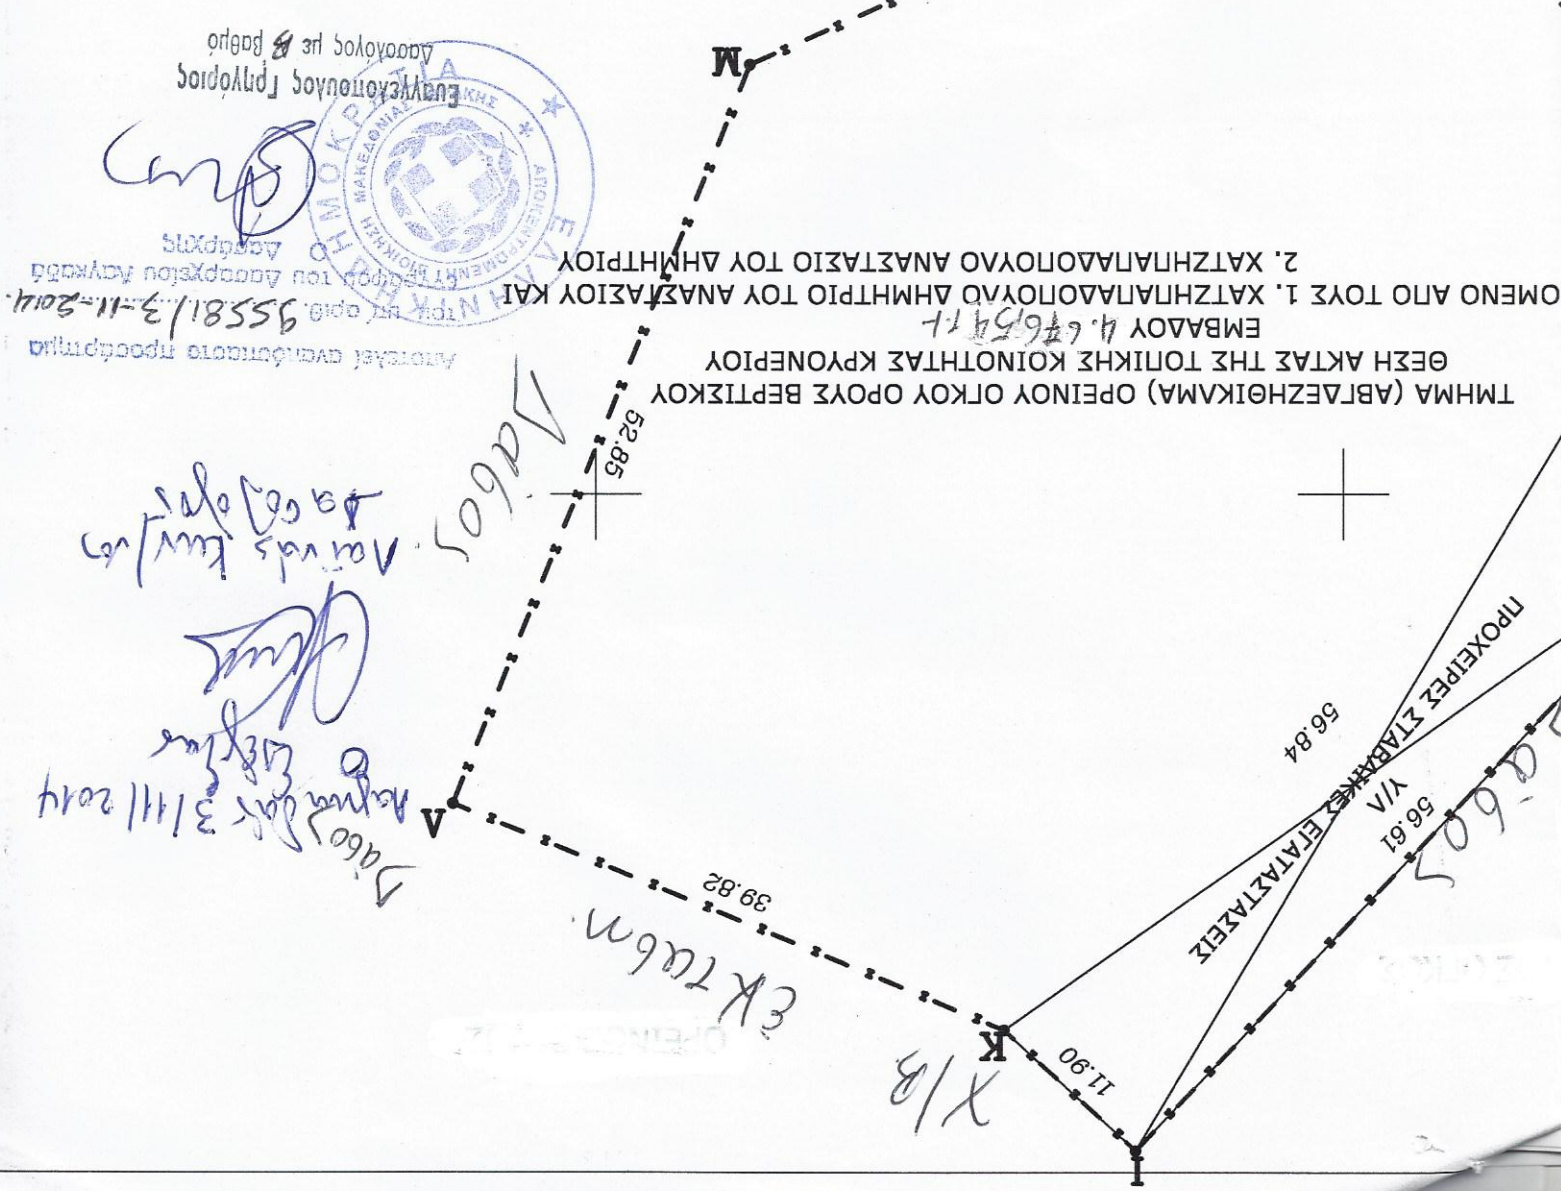 Ι
11.90
Κ
Χ/Β
Έκταση
39.82
Λ
Δάσος
56.61
Υ/Λ
56.84
ΠΡΟΧΕΙΡΕΣ ΣΤΑΒΛΙΚΕΣ ΕΓΑΤΑΣΤΑΣΕΙΣ
Δάσος
Λαγκαδάς 3/11/2014
Ο
Δασολόγος
Δάσος
52.85
ΤΜΗΜΑ (ΑΒΓΔΕΖΗΘΙΚΛΜΑ) ΟΡΕΙΝΟΥ ΟΓΚΟΥ ΟΡΟΥΣ ΒΕΡΤΙΣΚΟΥ
ΘΕΣΗ ΑΚΤΑΣ ΤΗΣ ΤΟΠΙΚΗΣ ΚΟΙΝΟΤΗΤΑΣ ΚΡΥΟΝΕΡΙΟΥ
ΕΜΒΑΔΟΥ 4.676,54
ΟΜΕΝΟ ΑΠΟ ΤΟΥΣ 1. ΧΑΤΖΗΠΑΠΑΔΟΠΟΥΛΟ ΔΗΜΗΤΡΙΟ ΤΟΥ ΑΝΑΣΤΑΣΙΟΥ ΚΑΙ
2. ΧΑΤΖΗΠΑΠΑΔΟΠΟΥΛΟ ΑΝΑΣΤΑΣΙΟ ΤΟΥ ΔΗΜΗΤΡΙΟΥ
Αποτελεί αναπόσπαστο προσάρτημα
υπ' αριθ. 95581/3-11-2014
εγγράφου του Δασαρχείου Λαγκαδά
Ο Δασάρχης
ΕΛΛΗΝΙΚΗ ΔΗΜΟΚΡΑΤΙΑ
ΑΠΟΚΕΝΤΡΩΜΕΝΗ ΔΙΟΙΚΗΣΗ ΜΑΚΕΔΟΝΙΑΣ ΘΡΑΚΗΣ
Ευαγγελόπουλος Γρηγόριος
Δασολόγος με Β βαθμό
Μ